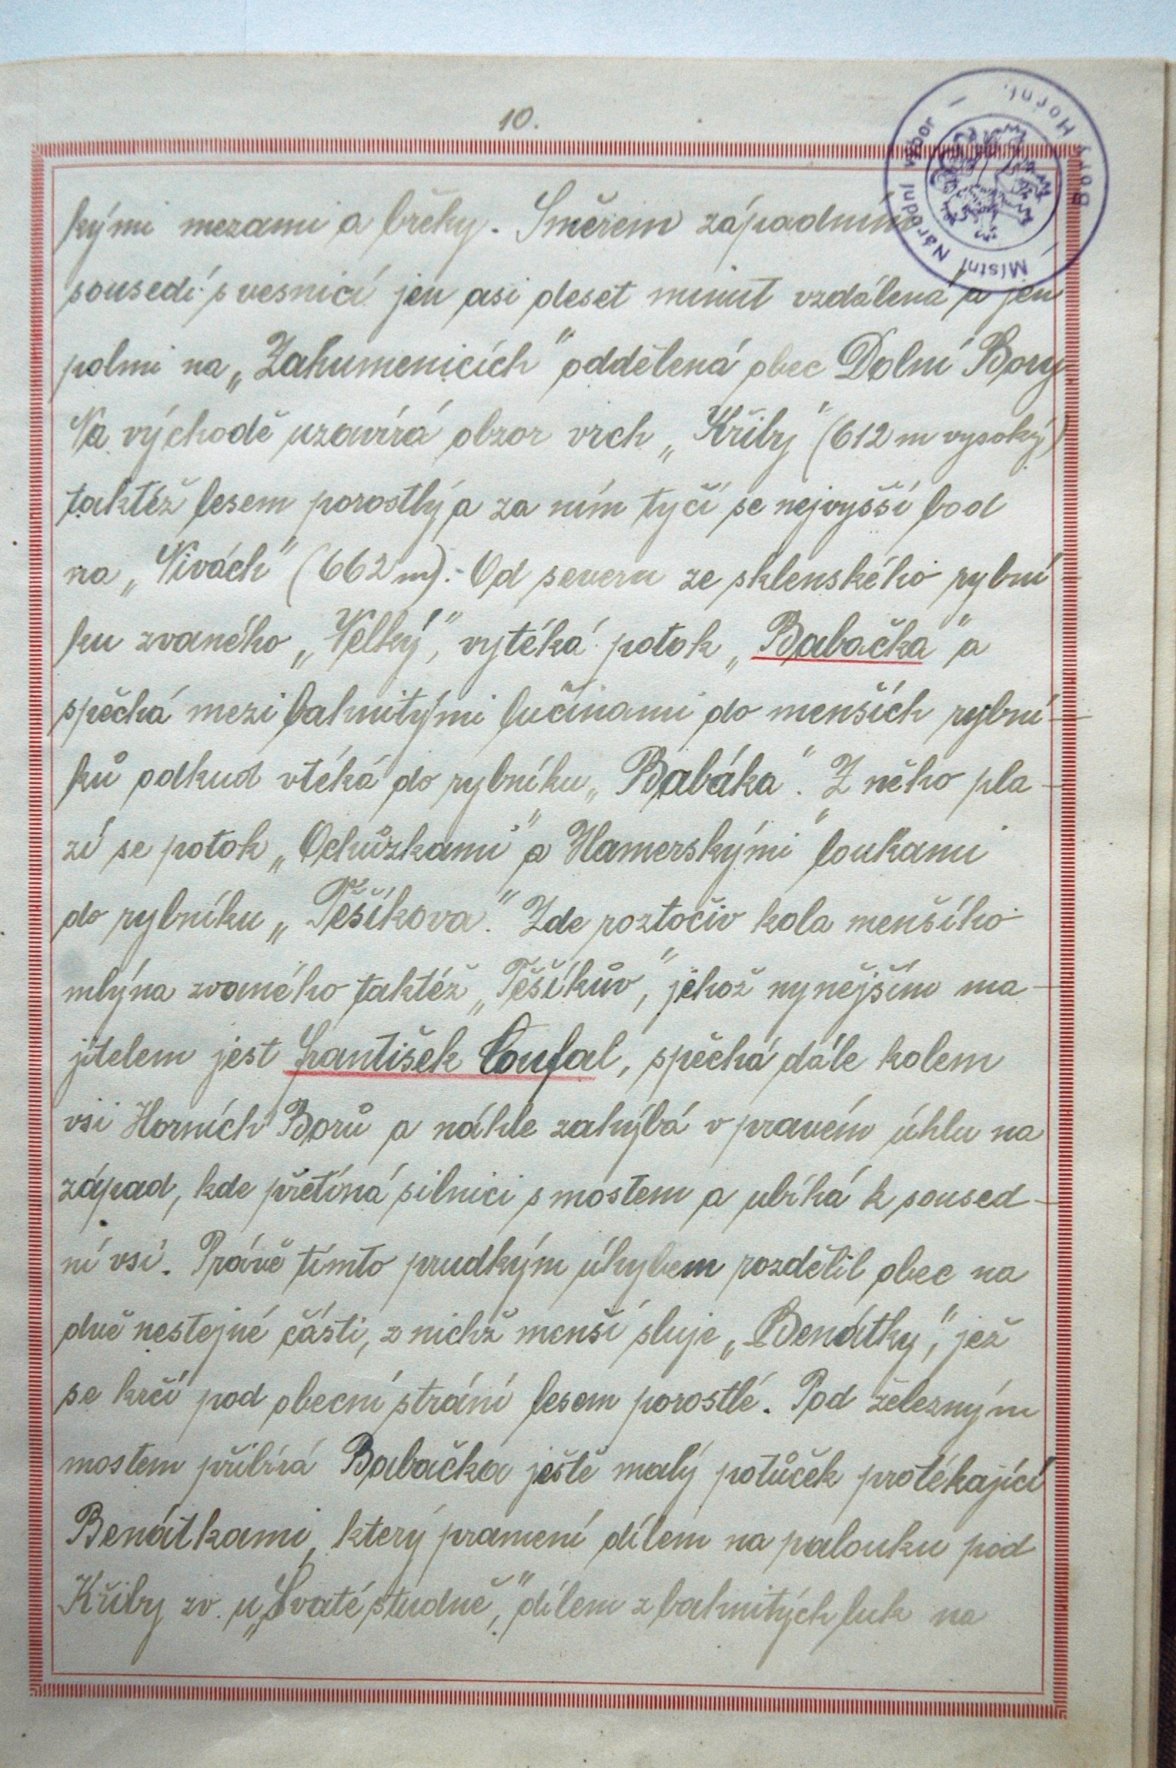 10.
Místní Národní výbor — Bory Horní. —
kými mezami a břehy. Směrem západním
sousedí s vesnicí jen asi deset minut vzdálená a jen
polmi na „Zahumenicích" oddělená obec Dolní Bory.
Na východě uzavírá obzor vrch „Křiby" (612 m vysoký)
taktéž lesem porostlý a za ním tyčí se nejvyšší bod
na „Nivách" (662 m). Od severu ze sklenského rybní-
ku zvaného „Velký", vytéká potok „Babačka" a
spěchá mezi bahnitými lučinami do menších rybní-
ků odkud vtéká do rybníku „Babáka". Z něho pla-
zí se potok „Ochůzkami" a Hamerskými" loukami
do rybníku „Těšíkova". Zde roztočiv kola menšího
mlýna zvaného taktéž „Těšíkův", jehož nynějším ma-
jitelem jest František Coufal, spěchá dále kolem
vsi Horních Borů a náhle zahýbá v pravém úhlu na
západ, kde přetíná silnici s mostem a ubíhá k soused-
ní vsi. Právě tímto prudkým úhybem rozdělil obec na
dvě nestejné části, z nichž menší sluje „Benátky", jež
se krčí pod obecní strání lesem porostlé. Pod železným
mostem přibírá Babačka ještě malý potůček protékající
Benátkami, který pramení dílem na palouku pod
Křiby zv. u „Svaté studně", dílem z bahnitých luk na